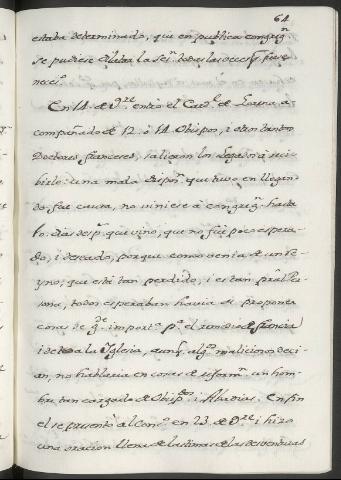 64
estaba determinado, que en publica congreg.n
se pudiese dilatar la Ses.n todas las veces q. fuese
neces.o
En 14 de 9.re entró el Card.l de Lorena, a-
compañado de 12 o 14 Obispos, i otros tantos
Doctores franceses, salieron los Legados a reci-
birle: una mala dispos.n que tuvo en llegan-
do, fue causa, no viniese a congreg.n hasta
10. dias desp.s que vino, que no fue poco espera-
do, i deseado, porque como venia de un Re-
yno, que está tan perdido, i es tan pral Per-
sona, todos esperaban havia de proponer
cosas de g.de import.a p.a el remedio de francia
i de toda la Iglesia, aunq. alg.s maliciosos deci-
an, no hablaria en cosas de reform.n un hom-
bre tan cargado de Obisp.dos i Abadias. En fin
el se presentó al Conc.o en 23 de 9.re i hizo
una oracion llena de lastimas de las desventuras